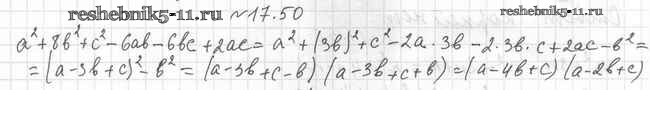 reshebnik5-11.ru №17.50 reshebnik5-11.ru
a²+8b²+c²-6ab-6bc+2ac= a²+(3b)²+c²-2a·3b-2·3b·c+2ac-b²=
=(a-3b+c)²-b²=(a-3b+c-b)(a-3b+c+b)=(a-4b+c)(a-2b+c)